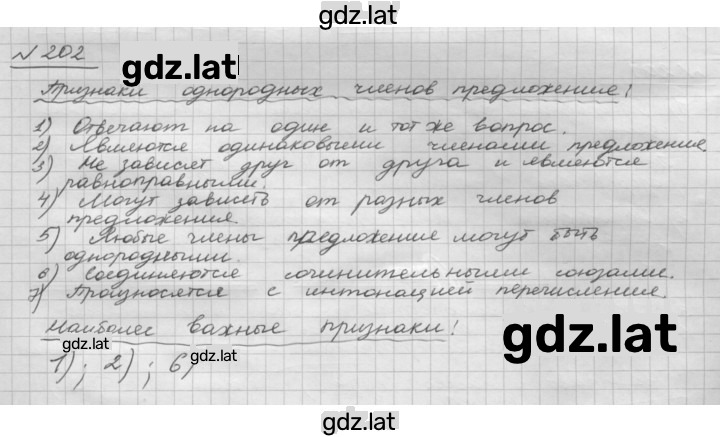 gdz.lat
№ 202
gdz.lat
Признаки однородных членов предложения!
1) Отвечают на один и тот же вопрос.
2) Являются одинаковыми членами предложения.
3) Не зависят друг от друга и являются
равноправными.
4) Могут зависеть от разных членов
предложения.
5) Любые члены предложение могут быть
однородными.
6) Соединяются сочинительными союзами.
7) Произносятся с интонацией перечисления.
Наиболее важные признаки!
gdz.lat
gdz.lat
gdz.lat
1); 2); 6)
gdz.lat